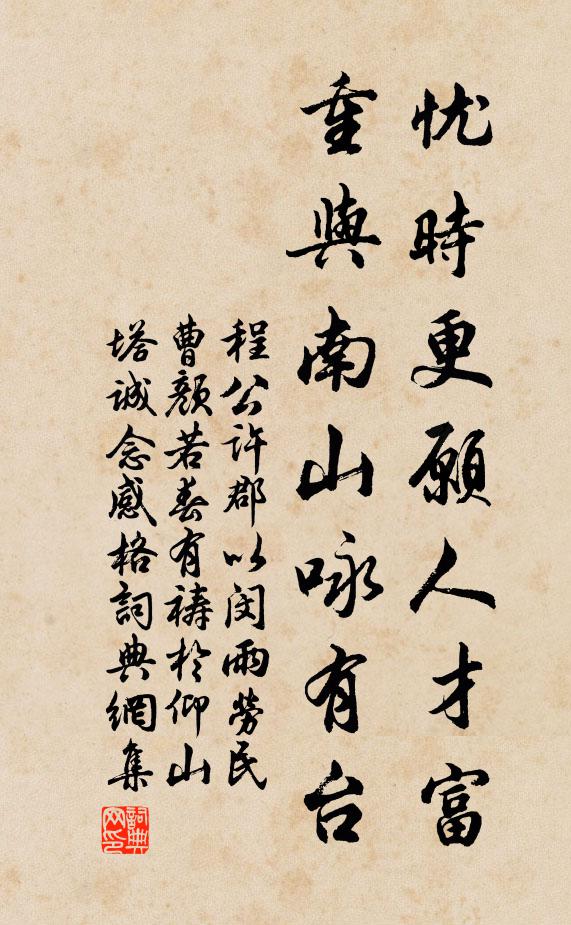 忧時更願人才富
重與南山咏有台
程公許郡以闵雨勞民
曹顏若春有禱於仰山
塔誠念感格詞典網集
詞典网印